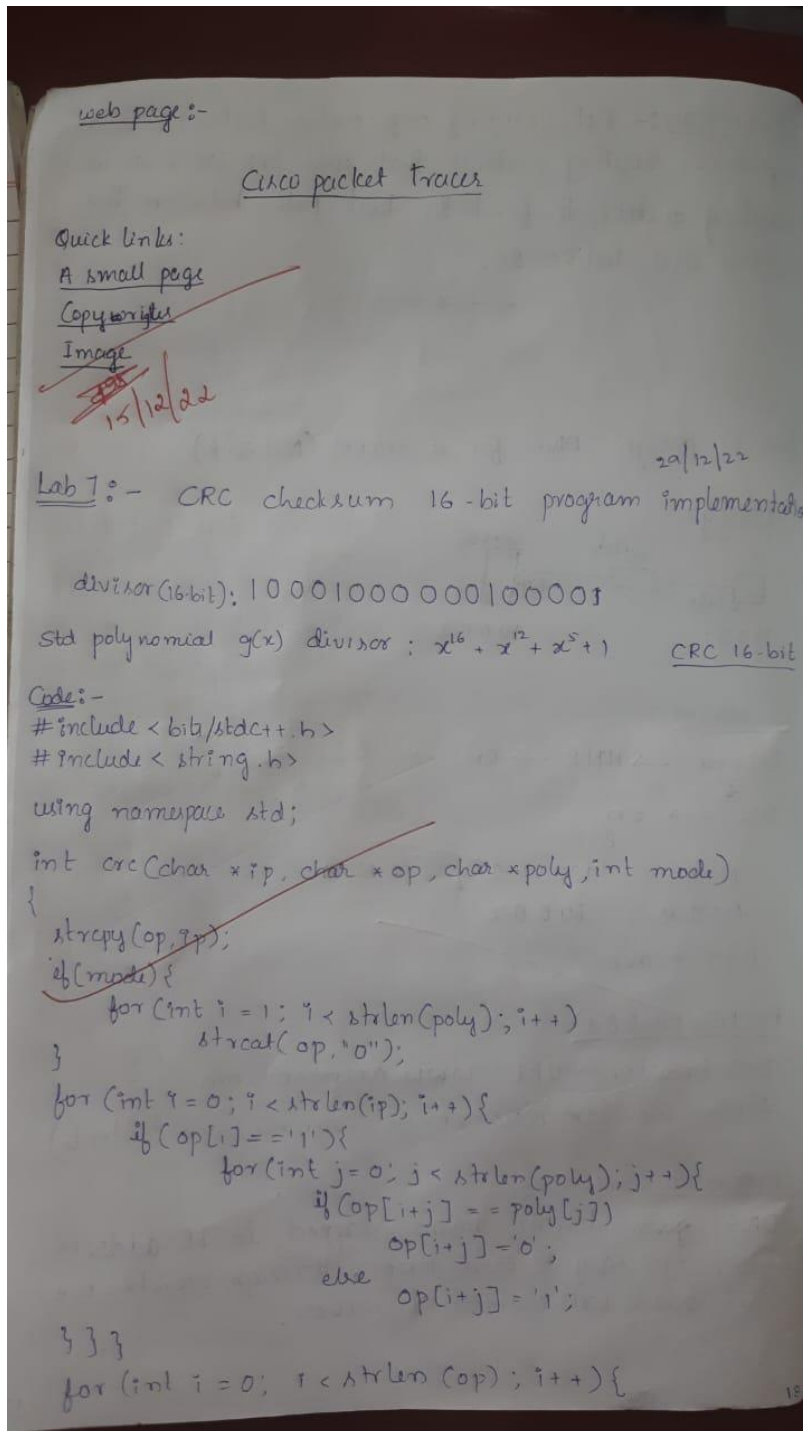 web page :-
Cisco packet tracer
Quick links:
A small page
Copyrights
Image
15/12/22
29/12/22
Lab 7 :- CRC checksum 16-bit program implementation
divisor (16-bit): 10001000000100001
Std polynomial g(x) divisor : x^16 + x^12 + x^5 + 1 CRC 16-bit
Code :-
#include <bits/stdc++.h>
#include <string.h>
using namespace std;
int crc(char *ip, char *op, char *poly, int mode)
{
strcpy(op, ip);
if(mode){
for(int i = 1; i < strlen(poly); i++)
strcat(op, "0");
}
for (int i = 0; i < strlen(ip); i++){
if (op[i] == '1'){
for(int j = 0; j < strlen(poly); j++){
if (op[i+j] == poly[j])
op[i+j] = '0';
else
op[i+j] = '1';
} } }
for (int i = 0; i < strlen (op); i++){
18